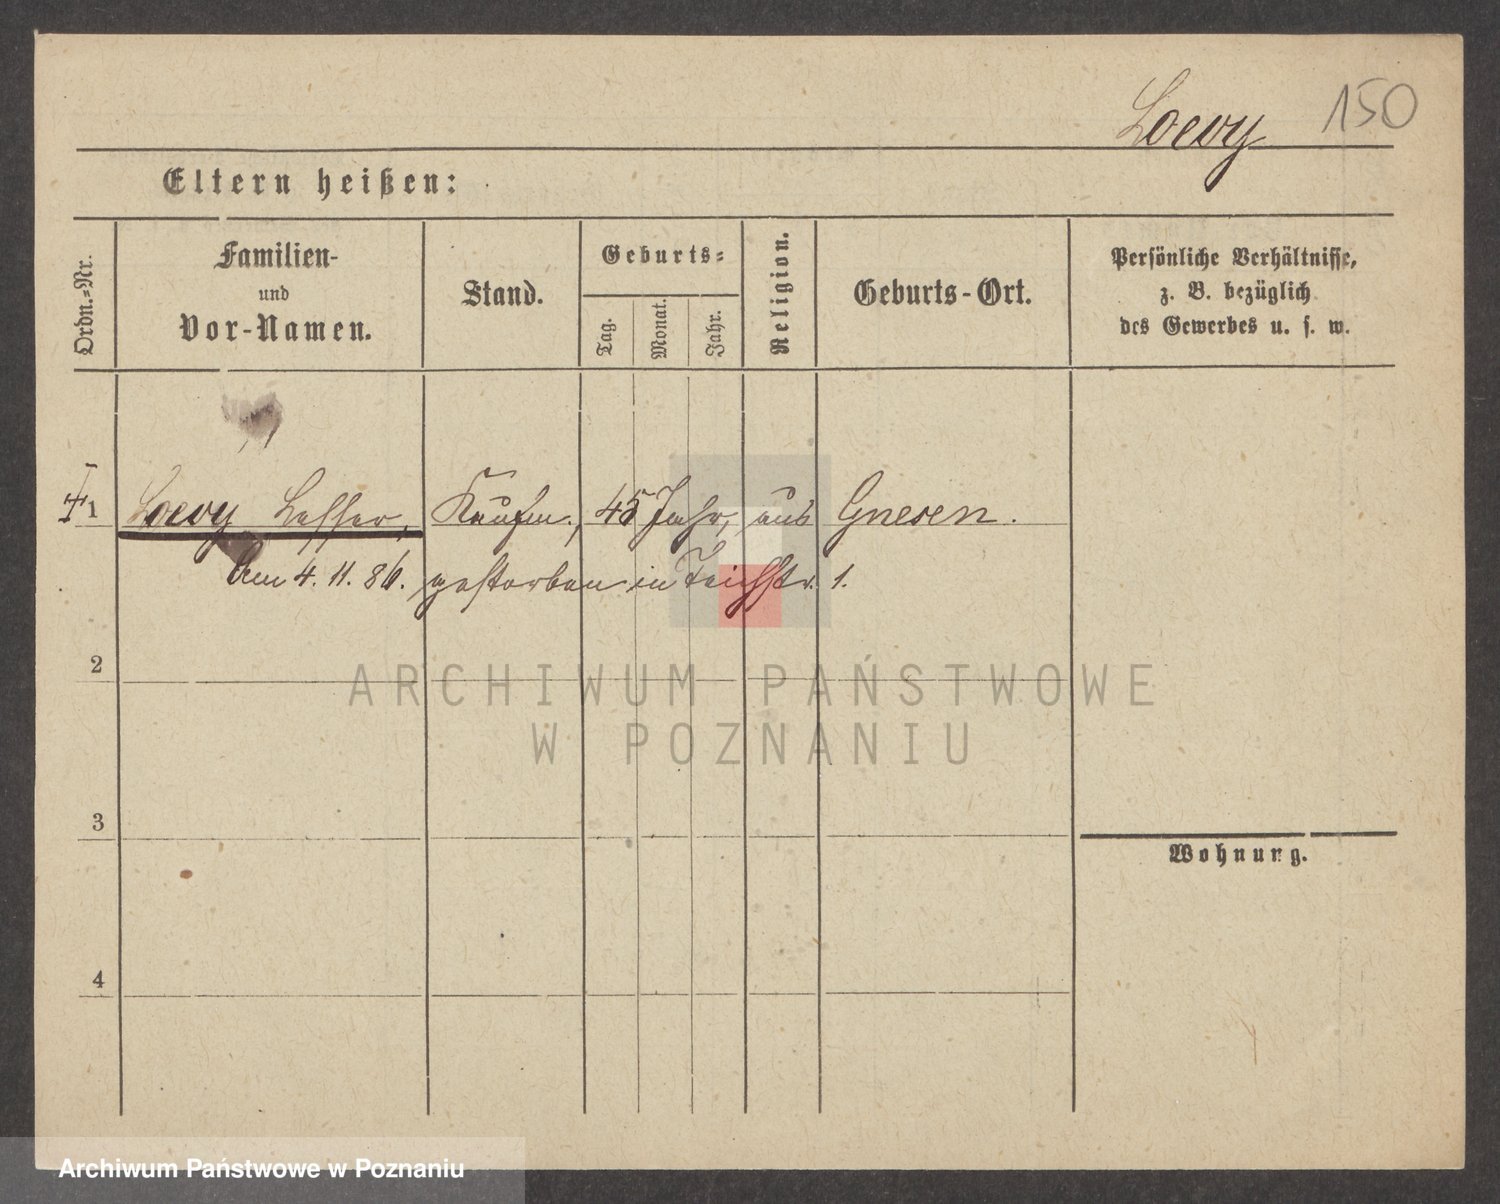 Loevy 150
Eltern heißen:
Ordn.-Nr.
Familien-
und
Vor-Namen.
Stand.
Geburts-
Tag.
Monat.
Jahr.
Religion.
Geburts-Ort.
Persönliche Verhältnisse,
z. B. bezüglich
des Gewerbes u. s. w.
1 Loevy Lesser, Kaufm., 45 Jahr, aus Gnesen.
Am 4. 11. 86. gestorben in Teichstr. 1.
2
ARCHIWUM PAŃSTWOWE
W POZNANIU
3
Wohnung.
4
Archiwum Państwowe w Poznaniu